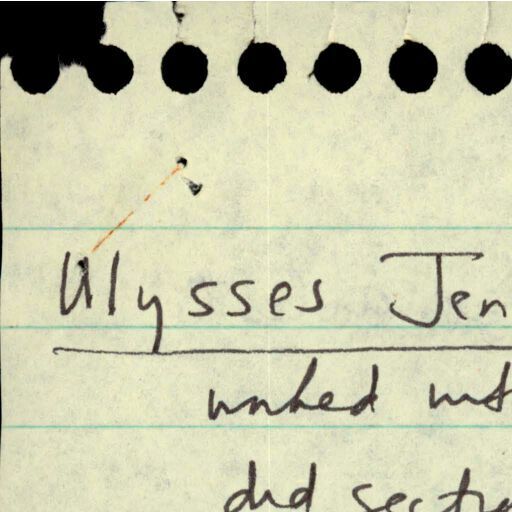 Ulysses Jen
worked with
did sectio